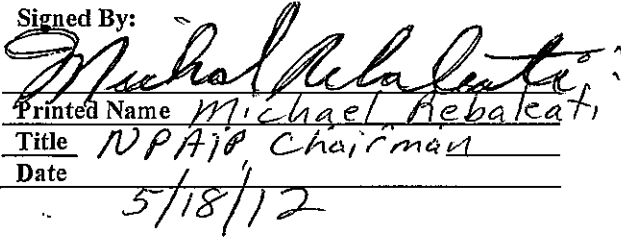 Signed By:
Michael Rebaleati
Printed Name Michael Rebaleati
Title NPAIP Chairman
Date
5/18/12